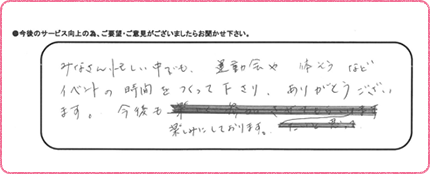 ●今後のサービス向上の為、ご要望・ご意見がございましたらお聞かせ下さい。
みなさん忙しい中でも、運動会や 体そう など
イベントの時間をつくって下さり、ありがとうござい
ます。今後も
楽しみにしております。